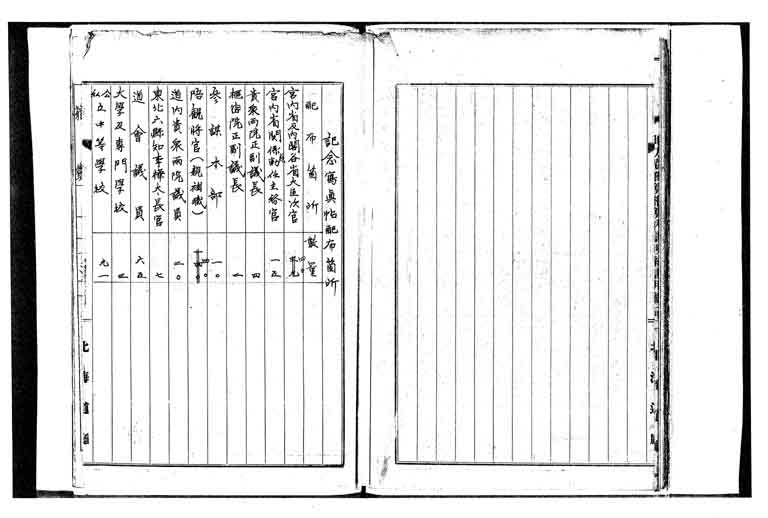 記念寫眞帖配布箇所
配布箇所 數量
宮内省及内閣各省大臣次官 四〇
宮内省関係勅任主務官 一五
貴衆両院正副議長 四
枢密院正副議長 二
参謀本部 一〇
陪観将官(親補職) 四〇
道内貴衆両院議員 二〇
東北六縣知事樺太長官 七
道會議員 六五
大學及専門学校 二
公私立中等學校 九一
北海道廳